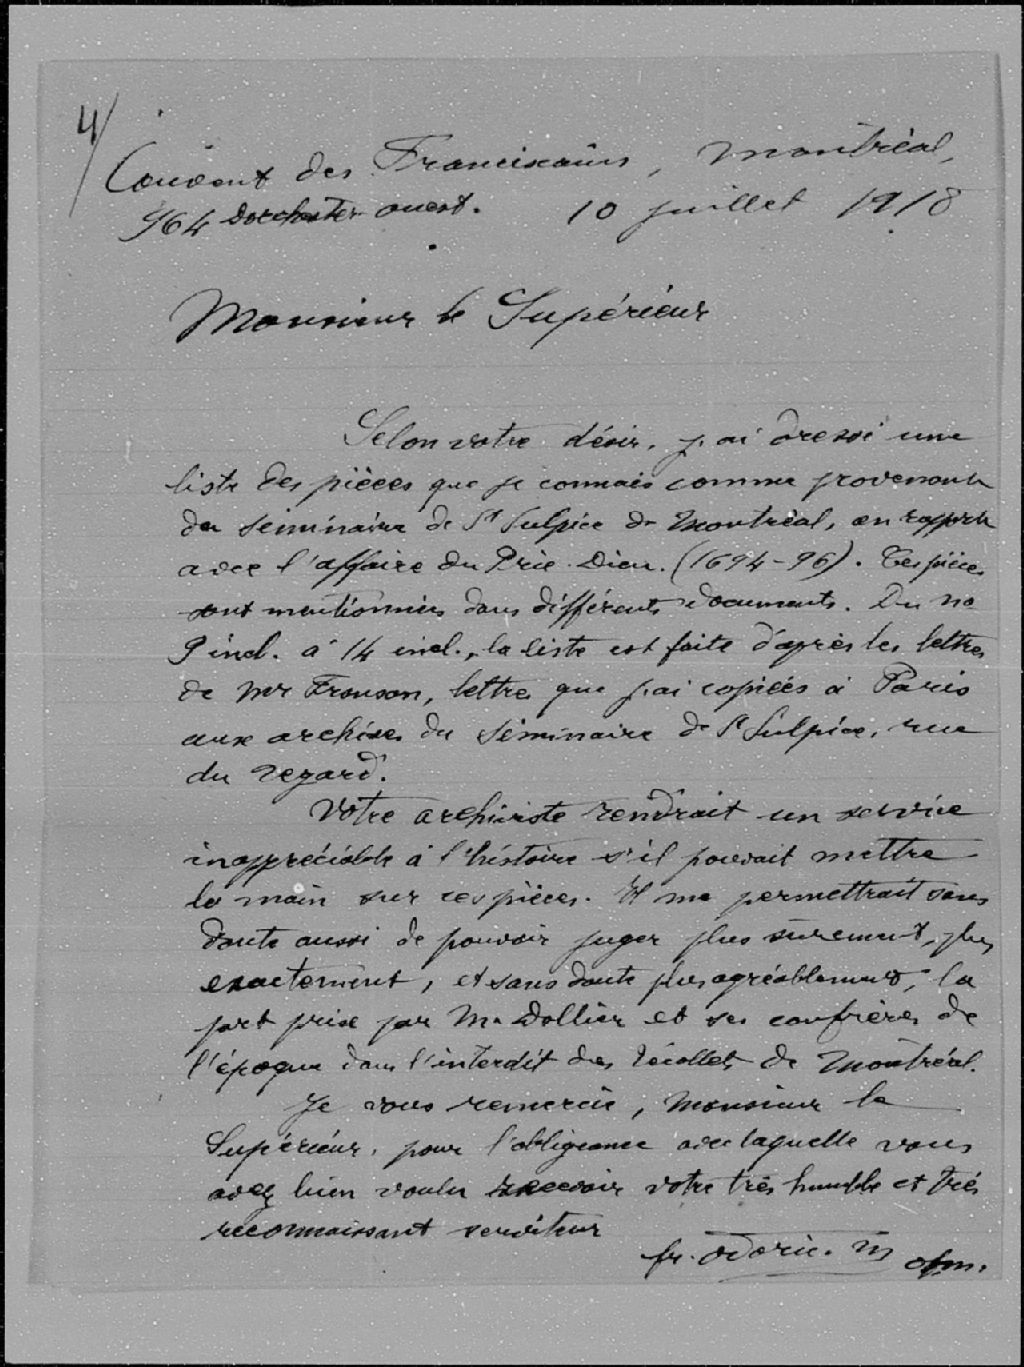 4/
Couvent des Franciscains, Montréal,
964 Dorchester ouest. 10 juillet 1918
Monsieur le Supérieur
Selon votre désir, j'ai dressé une
liste des pièces que je connais comme provenant
du séminaire de St Sulpice de Montréal, en rapport
avec l'affaire du Prie-Dieu. (1694-96). Ces pièces
sont mentionnées dans différents documents. Du no
9 incl. à 14 incl., la liste est faite d'après les lettres
de Mr Tronson, lettres que j'ai copiées à Paris
aux archives du Séminaire de St Sulpice, rue
du Regard.
Votre archiviste rendrait un service
inappréciable à l'histoire s'il pouvait mettre
la main sur ces pièces. Il me permettrait sans
doute aussi de pouvoir juger plus sûrement, plus
exactement, et sans doute plus agréablement, la
part prise par M. Dollier et ses confrères de
l'époque dans l'interdit des Récollets de Montréal.
Je vous remercie, Monsieur le
Supérieur, pour l'obligeance avec laquelle vous
avez bien voulu recevoir votre très humble et très
reconnaissant serviteur
fr. Odoric. M ofm.